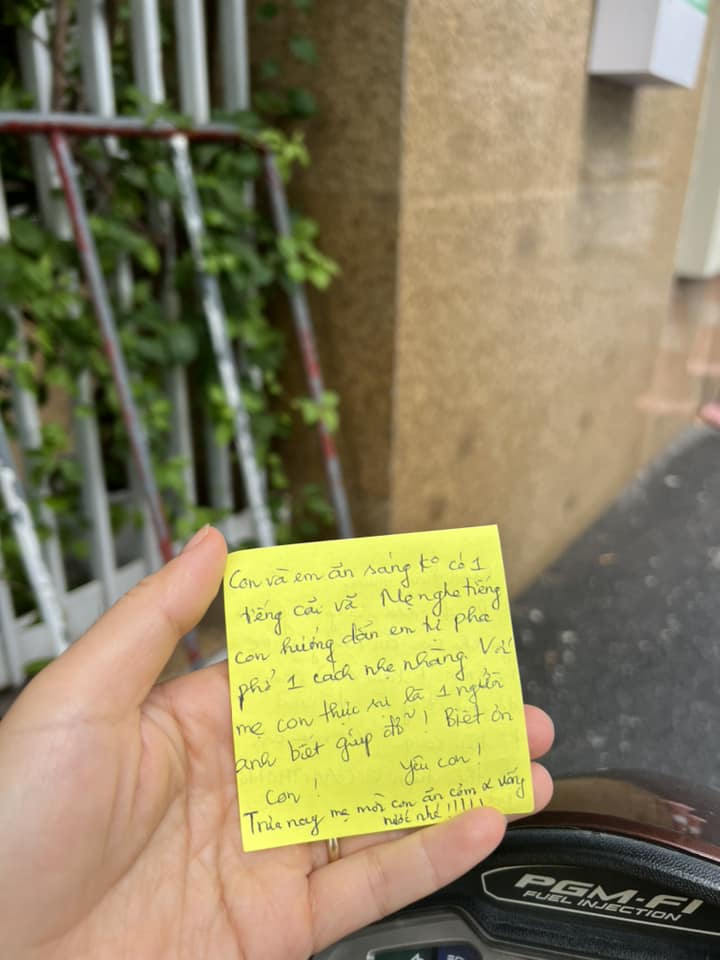 Con và em ăn sáng ko có 1
tiếng cãi vã. Mẹ nghe tiếng
con hướng dẫn em tự pha
phở 1 cách nhẹ nhàng. Với
mẹ con thực sự là 1 người
anh biết giúp đỡ! Biết ơn
Con! Yêu con!
Trưa nay mẹ mời con ăn cơm & uống
nước nhé!!!!!
PGM-FI
FUEL INJECTION